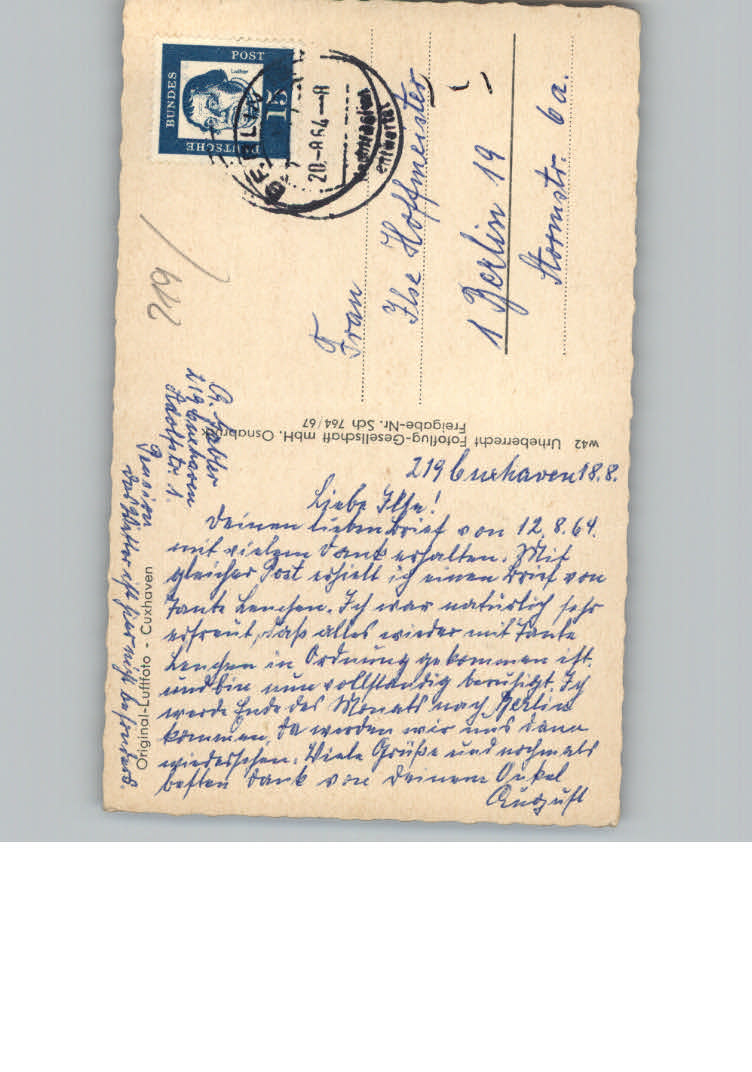 DEUTSCHE
BUNDES
POST
Luther
15
BERLIN
20.-8.64.-8
nachträglich
entwertet
Frau
Ilse Hoffmeister
1 Berlin 19
Stormstr. 6a.
219
w42 Urheberrecht Fotoflug-Gesellschaft mbH. Osnabrück
Freigabe-Nr. Sch 764/67
Original-Luftfoto - Cuxhaven
219 Cuxhaven
Pension
219 Cuxhaven 18.8.
Liebe Ilse!
Deinen lieben Brief von 12.8.64.
mit vielem Dank erhalten. Mit
gleicher Post erhielt ich einen Brief von
Tante Lenchen. Ich war natürlich sehr
erfreut, daß alles wieder mit Tante
Lenchen in Ordnung gekommen ist.
und bin nun vollständig beruhigt. Ich
werde Ende des Monats nach Berlin
kommen, da werden wir uns dann
wiedersehen. Viele Grüße und nochmals
besten Dank von Deinem Onkel
August